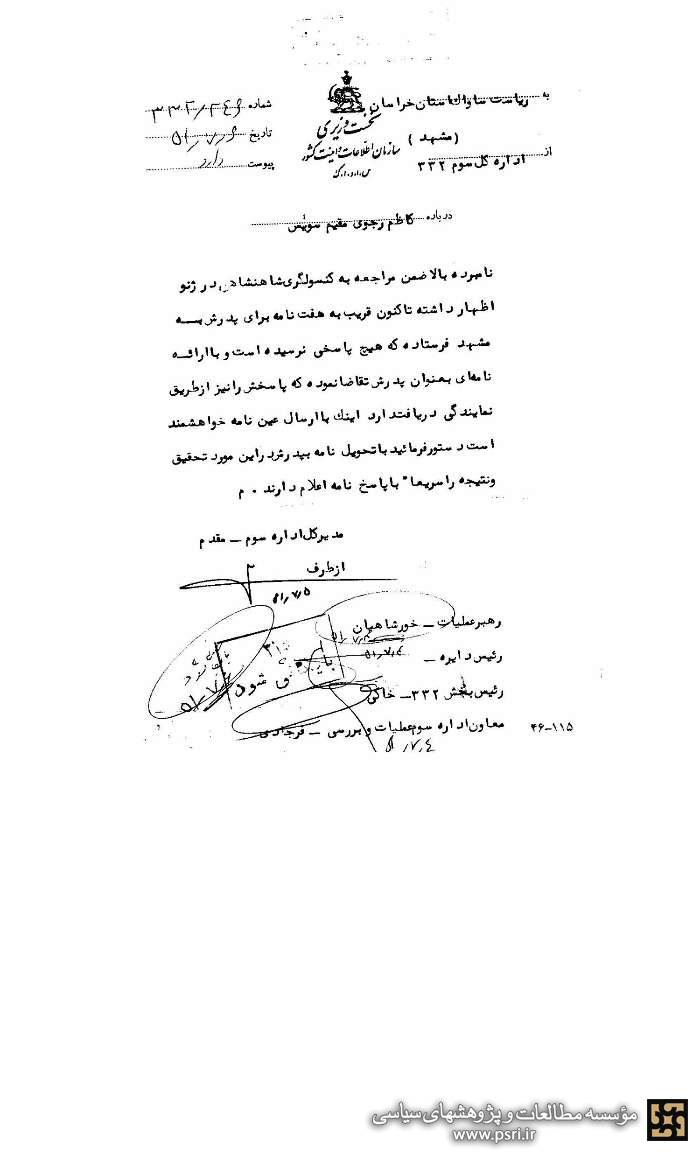 به ریاست ساواک استان خراسان
(مشهد)
از اداره کل سوم ۳۳۲
نخست وزیری
سازمان اطلاعات و امنیت کشور
س.ا.و.ا.ک
شماره
تاریخ ۵۱٫۷٫۶
پیوست دارد
درباره کاظم رجوی مقیم سوئیس
نامبرده بالا ضمن مراجعه به کنسولگری شاهنشاهی در ژنو
اظهار داشته تاکنون قریب به هفت نامه برای پدرش به
مشهد فرستاده که هیچ پاسخی نرسیده است و با ارائه
نامه‌ای بعنوان پدرش تقاضا نموده که پاسخش را نیز از طریق
نمایندگی دریافت دارد اینک با ارسال عین نامه خواهشمند
است دستور فرمائید با تحویل نامه بپدرش در این مورد تحقیق
و نتیجه را سریعا" با پاسخ نامه اعلام دارند . م
مدیرکل اداره سوم ــ مقدم
از طرف
۵۱٫۷٫۵
رهبر عملیات ــ خورشاهیان
رئیس دایره ــ
۵۱٫۷٫۴
رئیس بخش ۳۳۲ ــ خاکی
معاون اداره سوم عملیات و بررسی ــ
۵۱٫۷٫۴
۴۶-۱۱۵
شود
مؤسسه مطالعات و پژوهشهای سیاسی
www.psri.ir